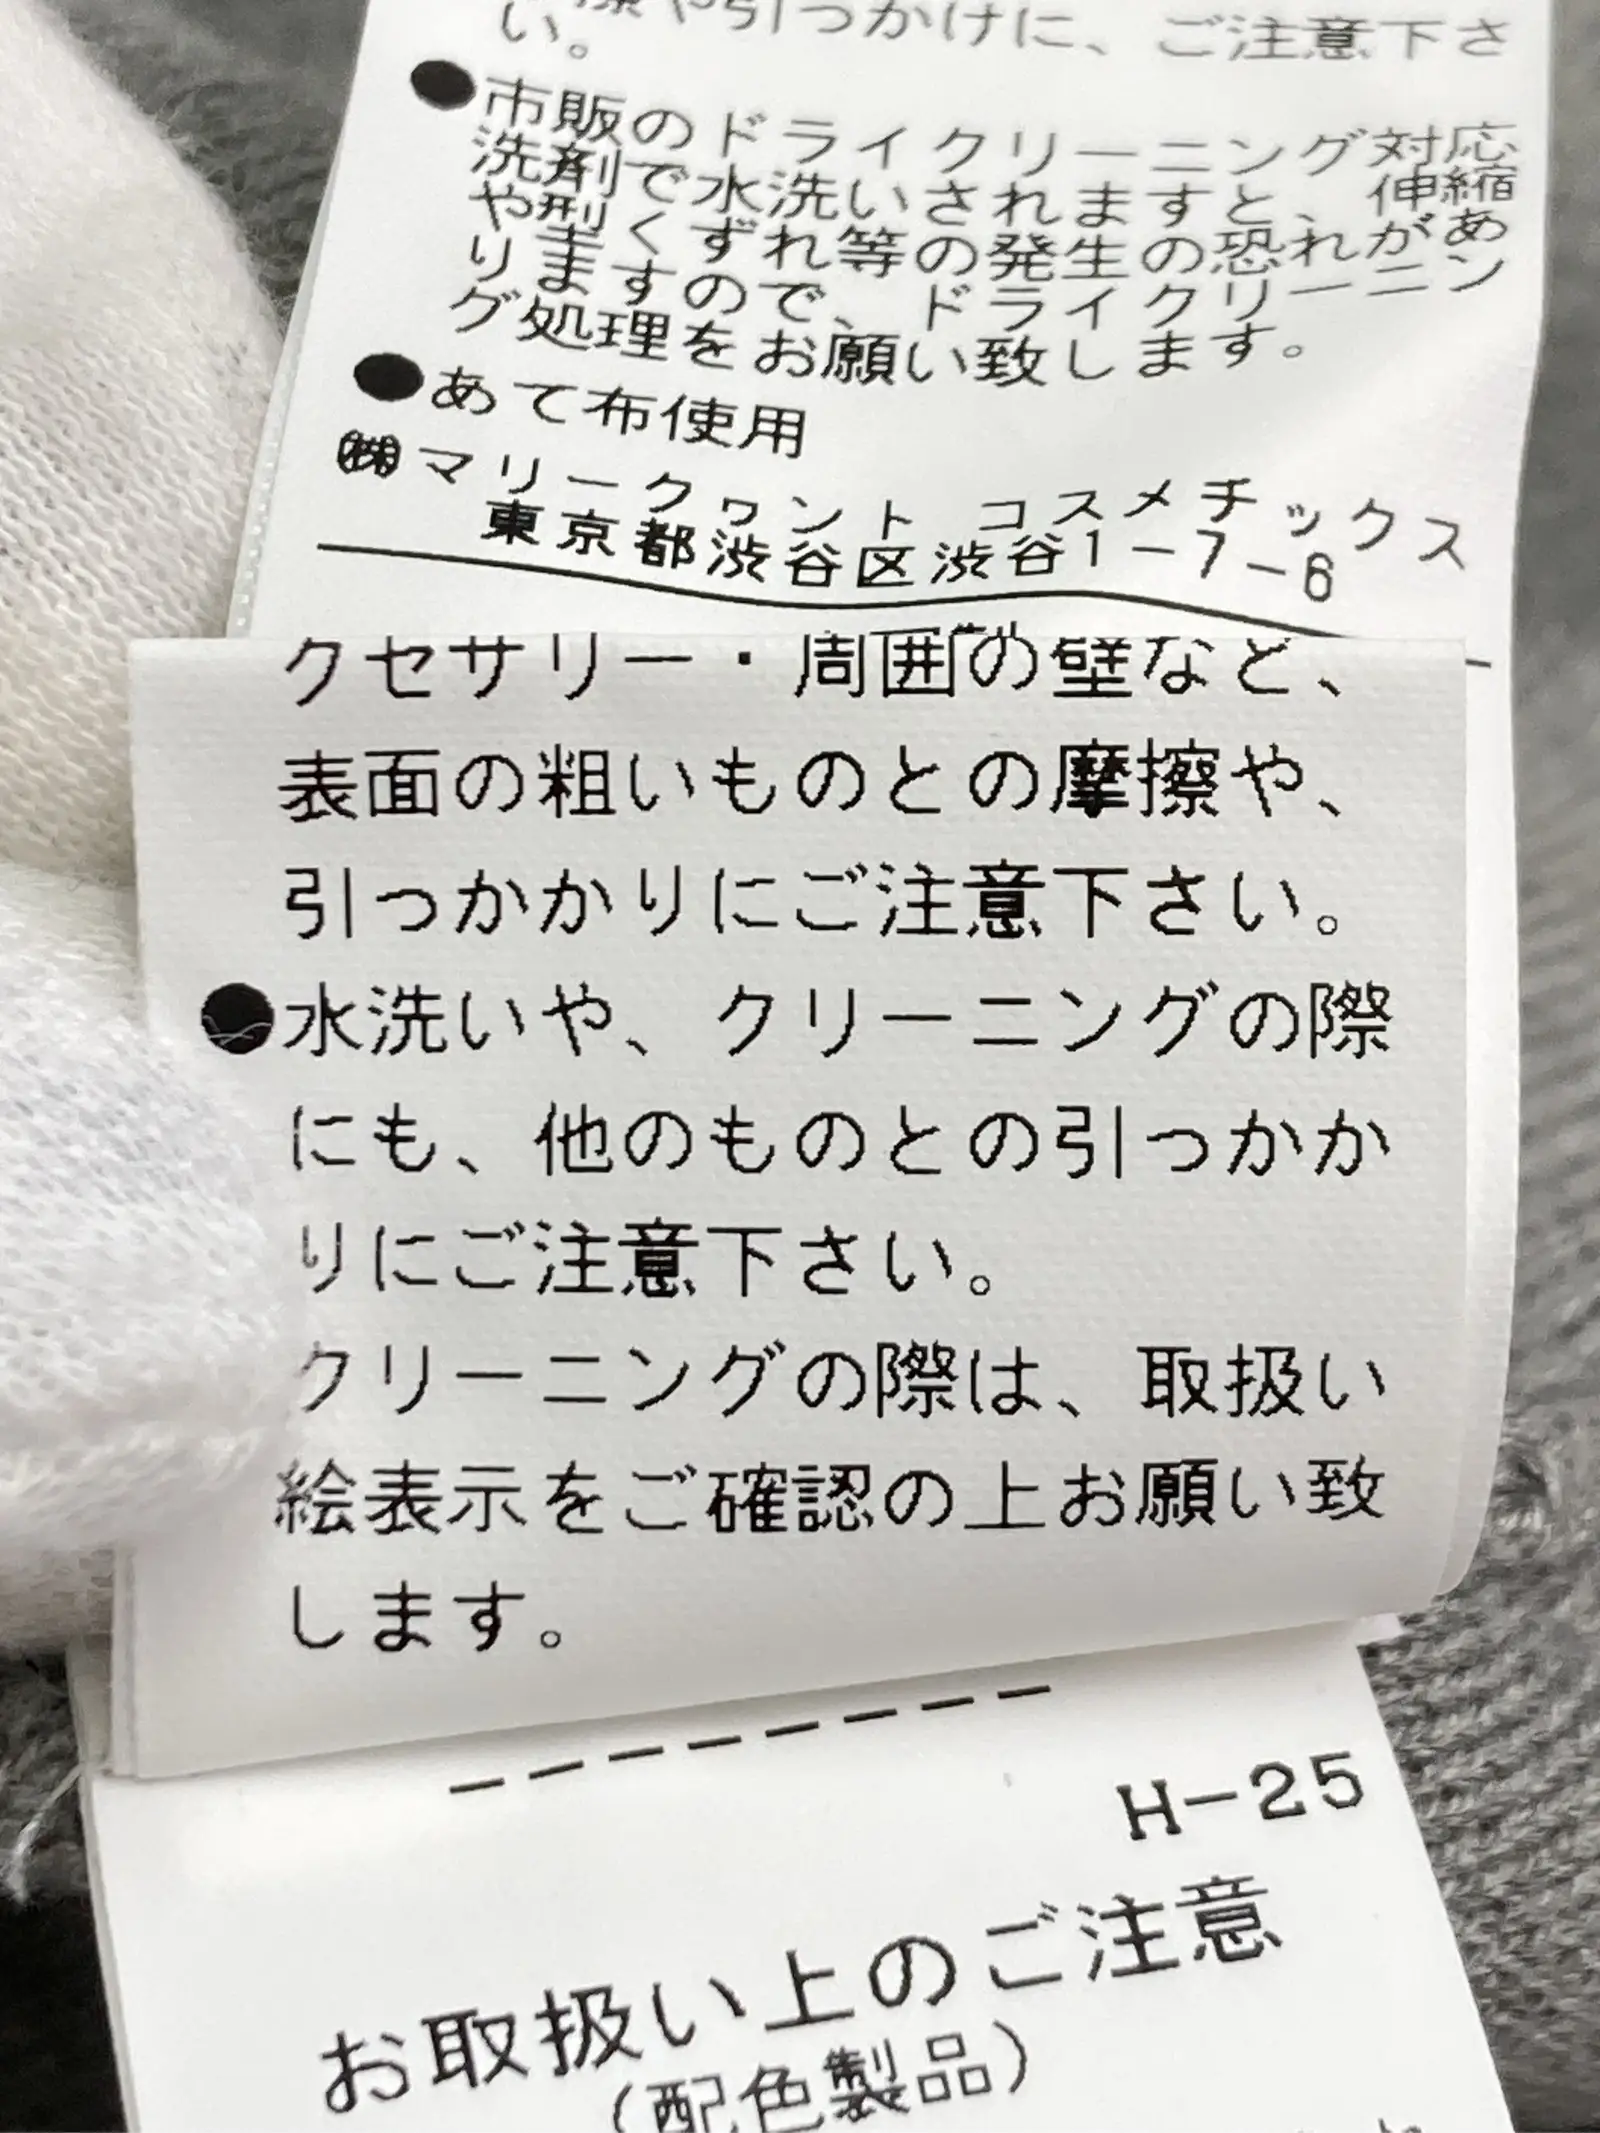 や引っかけに、ご注意下さ
い。
●市販のドライクリーニング対応
洗剤で水洗いされますと、伸縮
や型くずれ等の発生の恐れがあ
りますので、ドライクリーニン
グ処理をお願い致します。
●あて布使用
㈱マリークヮント コスメチックス
東京都渋谷区渋谷1-7-6
クセサリー・周囲の壁など、
表面の粗いものとの摩擦や、
引っかかりにご注意下さい。
●水洗いや、クリーニングの際
にも、他のものとの引っかか
りにご注意下さい。
クリーニングの際は、取扱い
絵表示をご確認の上お願い致
します。
H-25
お取扱い上のご注意
(配色製品)